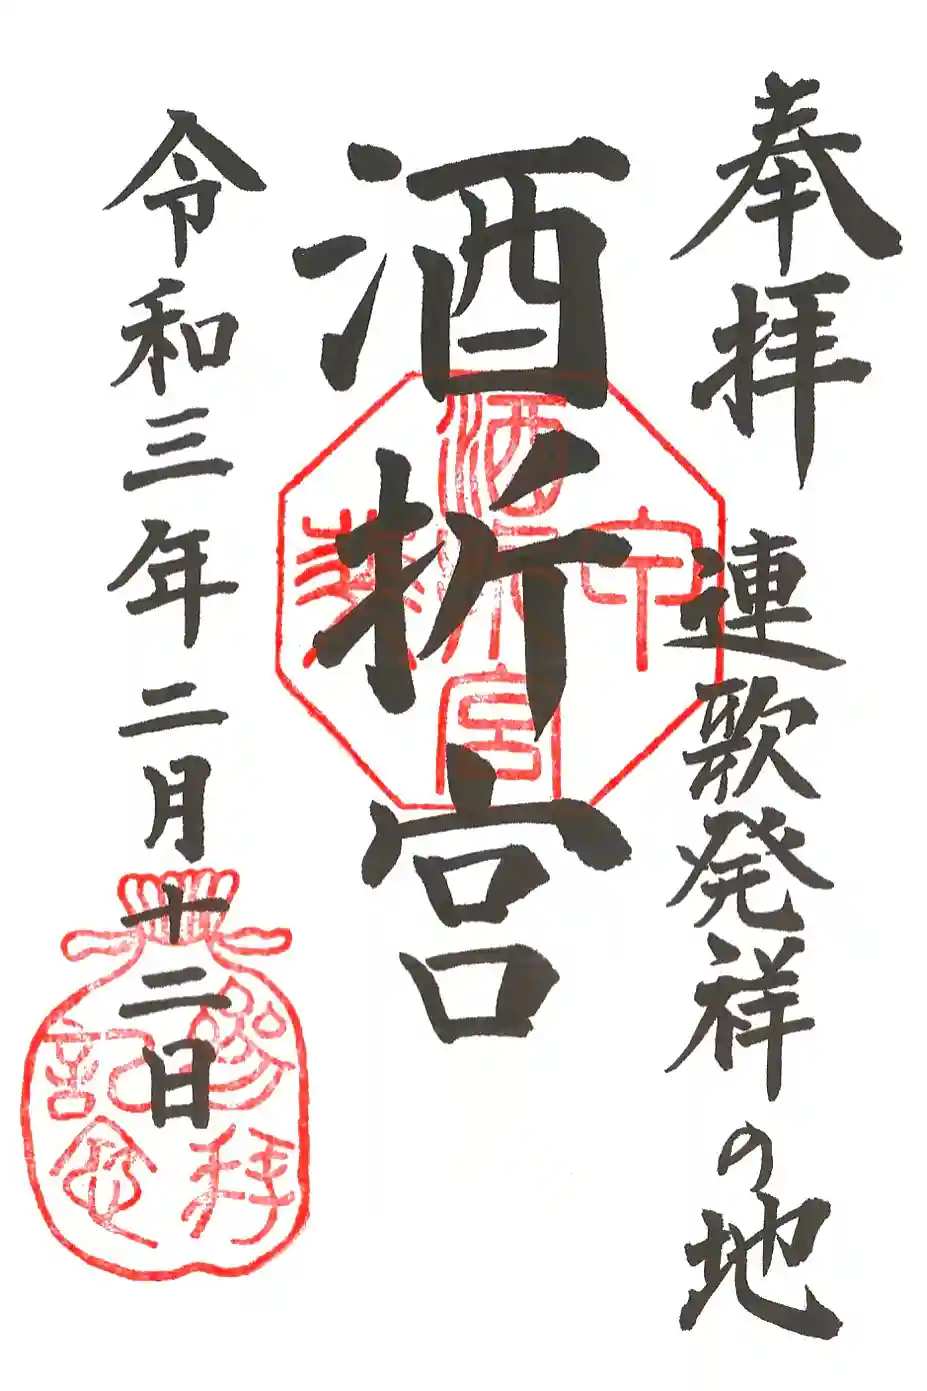 奉拝 連歌発祥の地
酒折宮
令和三年二月十二日
甲斐
酒折宮
參拜
記念